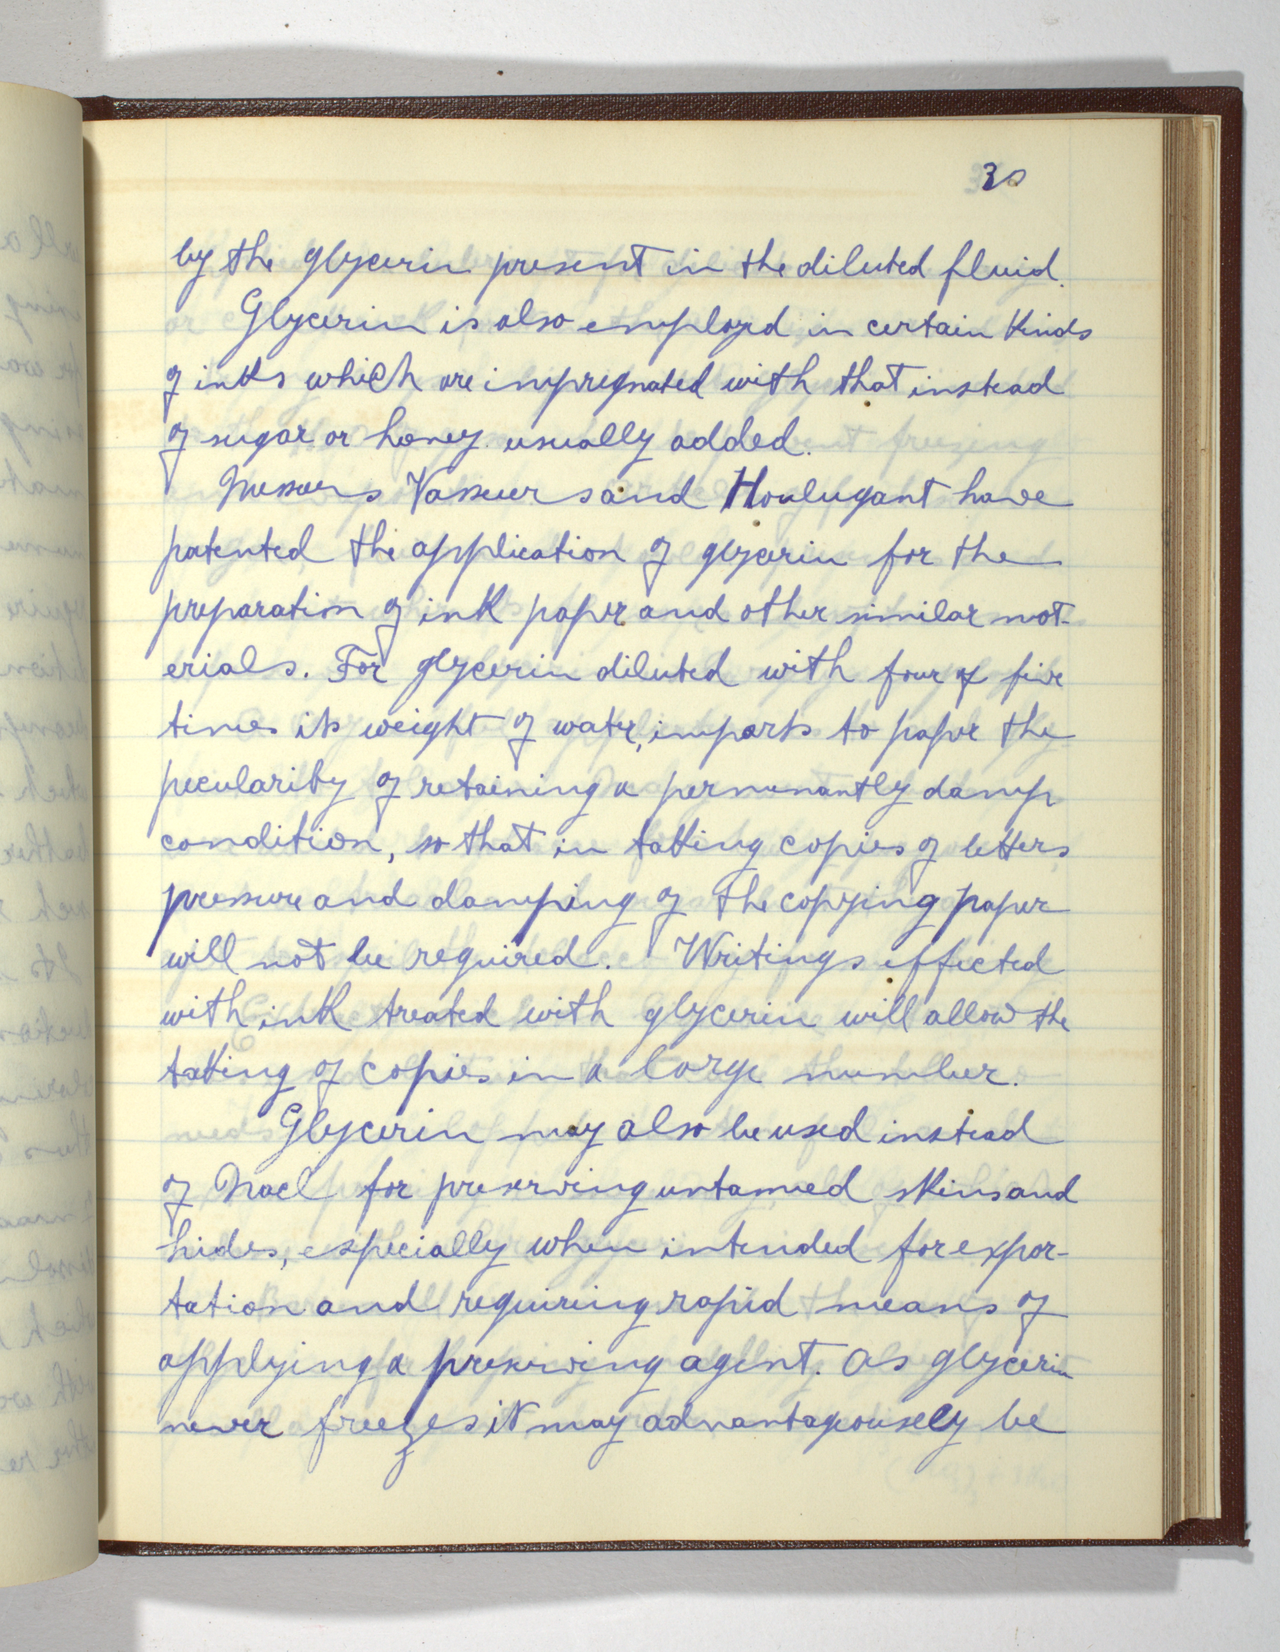 30
by the glycerin present in the diluted fluid.
Glycerin is also employed in certain kinds
of inks which are impregnated with that instead
of sugar or honey usually added.
Messers Vasseur s and Houlugant have
patented the application of glycerin for the
preparation of ink paper and other similar mat-
erials. For glycerin diluted with four of five
times its weight of water, imparts to paper the
pecularity of retaining a permanantly damp
condition, so that in taking copies of letters
pressure and damping of the copying paper
will not be required. Writings effected
with ink treated with glycerin will allow the
taking of copies in a large number.
Glycerin may also be used instead
of Nacl for preserving untanned skins and
hides, especially when intended for expor-
tation and requiring rapid means of
applying a preserving agent. As glycerin
never freezes it may advantageously be